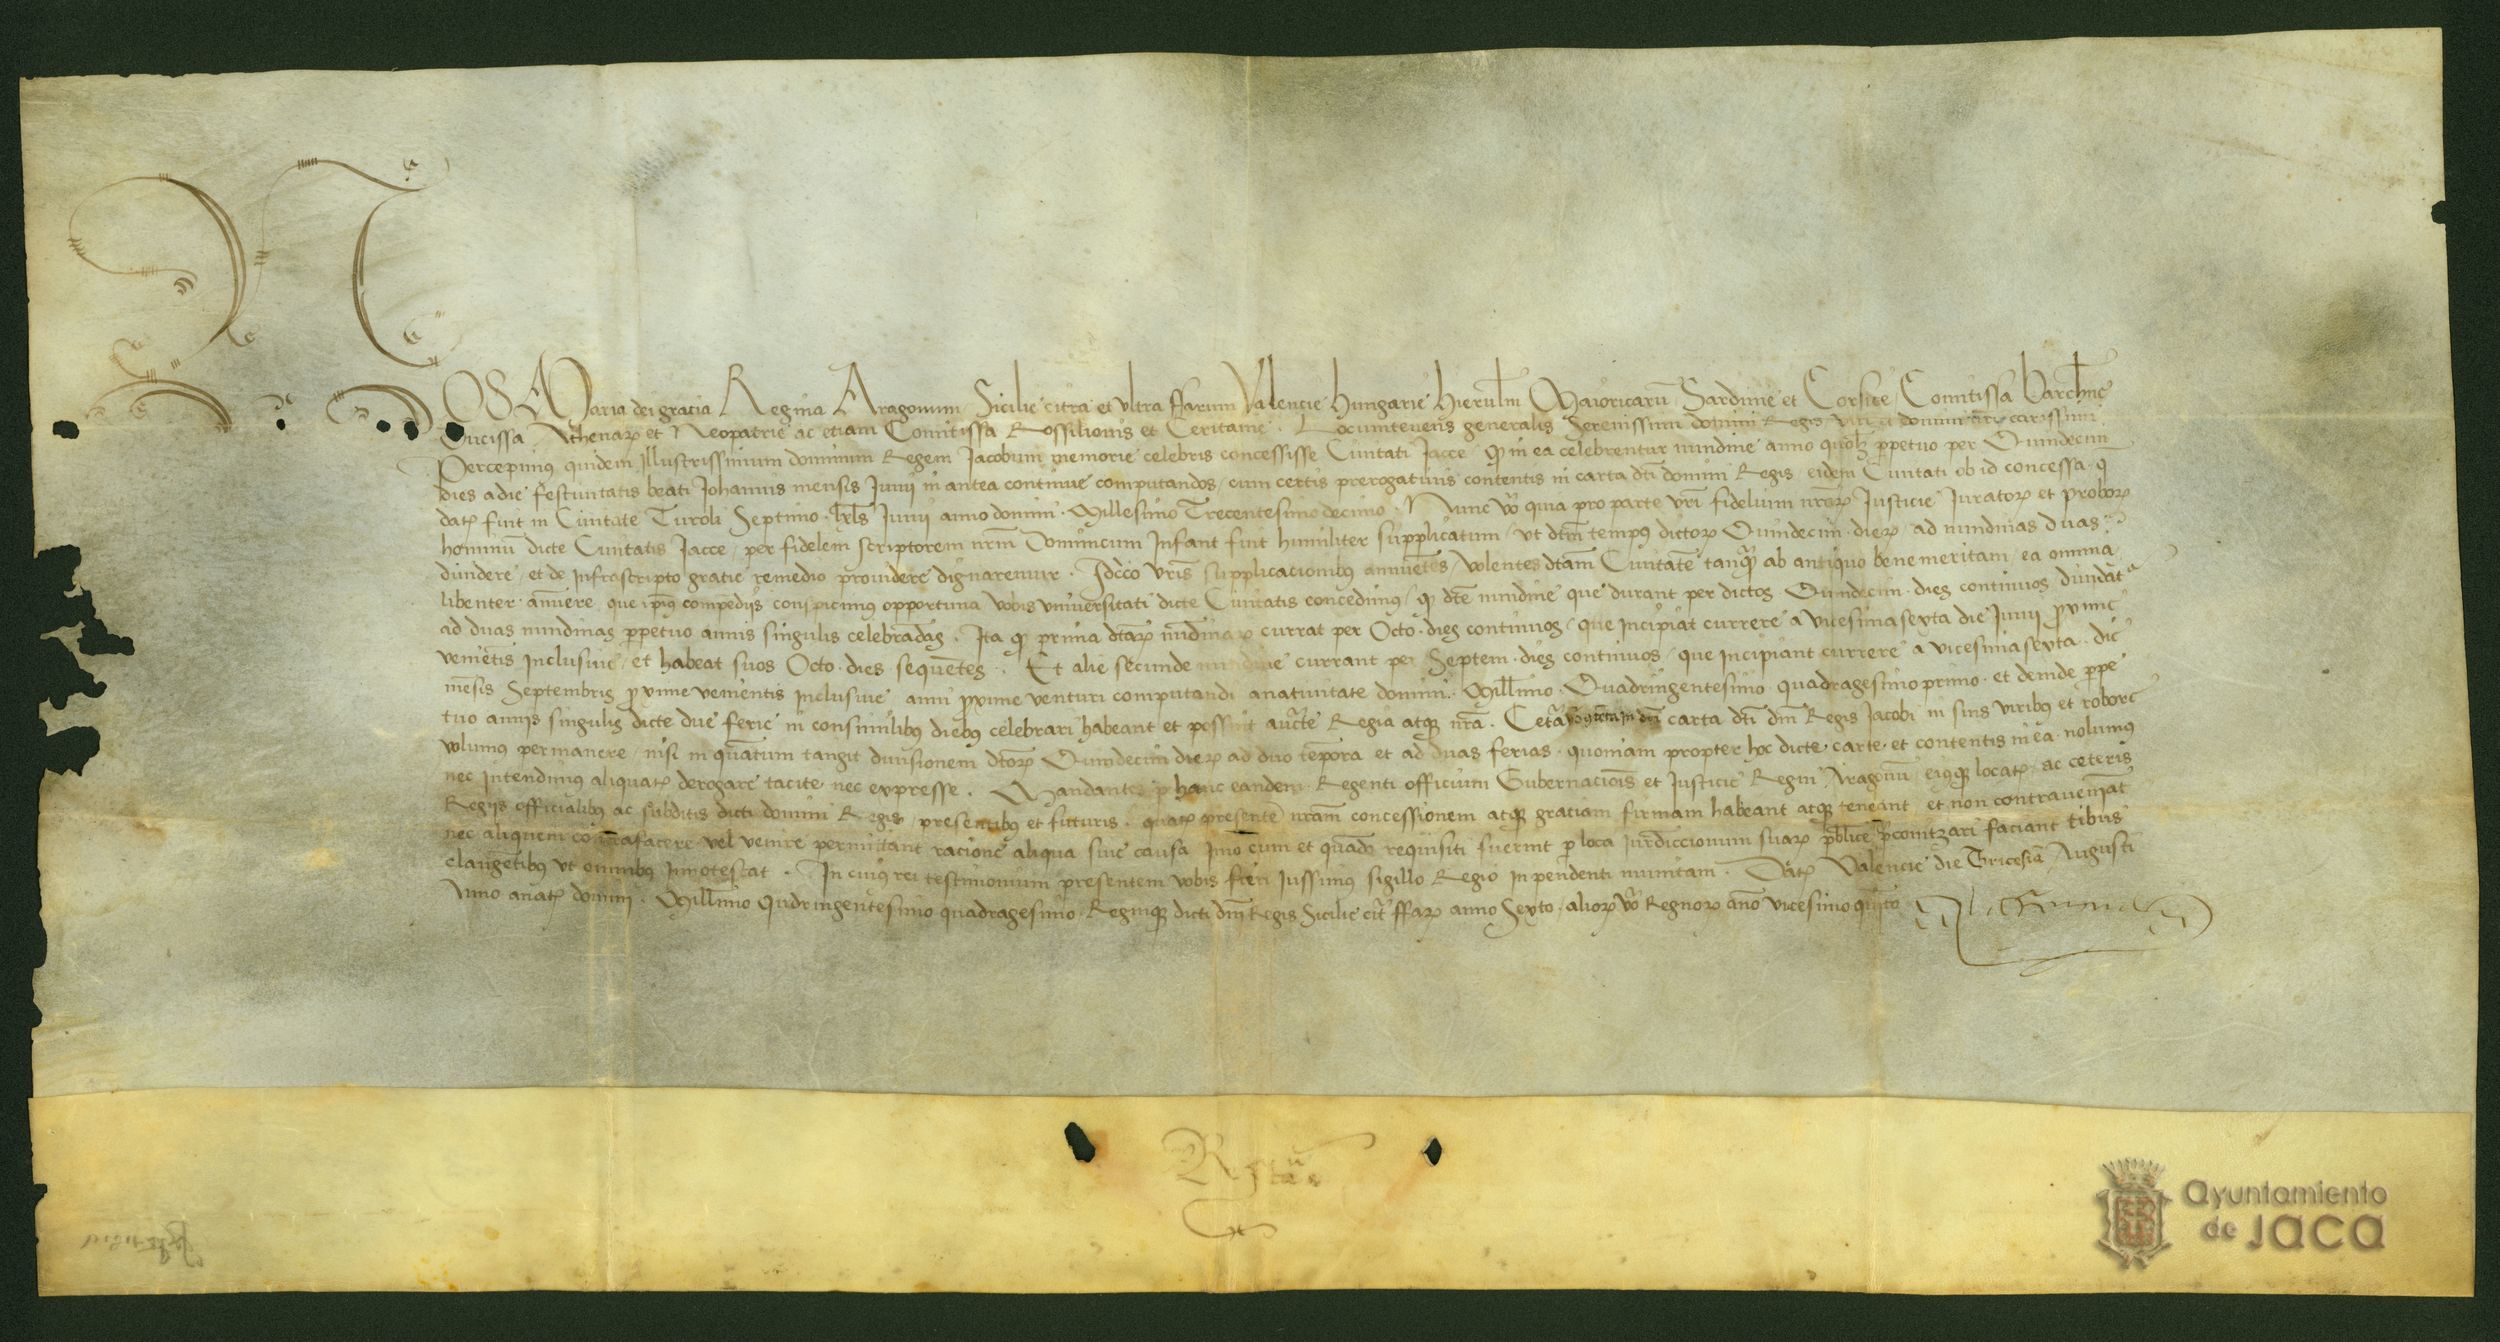 NOS Maria dei gracia Regina Aragonum Sicilie citra et ultra ffarum Valencie Hungarie Hierlm Maioricarū Sardinie et Corsice Comitissa Barchne
Ducissa Athenarȝ et Neopatrie ac etiam Comitissa Rossilionis et Ceritanie. Locumtenens generalis Serenissimi domini Regis viri et domini nri carissimi
Percepimus quidem Illustrissimum dominum Regem Jacobum memorie celebris concessisse Civitati Jacce / qȝ in ea celebrentur nundine anno quolȝ ppetuo per Quindecim
dies a die festivitatis beati Johannis mensis Junii in antea continue computandos / cum certis prerogativis contentis in carta dti domini Regis eidem Civitati ob id concessa. q
datȝ fuit in Civitate Turoli Septimo kls Junii anno domini Millesimo Trecentesimo decimo. Nunc vo quia pro parte vri fidelium nrorȝ Justicie Juratorȝ et proborȝ
hominū dicte Civitatis Jacce / per fidelem scriptorem nrm Dominicum Infant fuit humiliter supplicatum / ut dtm tempus dictorȝ Quindecim dierȝ ad nundinas duas
dividere / et de infrascripto gratie remedio providere dignaremur. Idcco vris supplicacionibus annuētes / volentes dtam Civitatē tanqȝ ab antiquo benemeritam / ea omnia
libenter annuere que ipius compēdiis conspicimus opportuna vobis universitati dicte Civitatis concedimus / qȝ dte nundine que durant per dictos Quindecim dies continuos dividāt
ad duas nundinas ppetuo annis singulis celebradas. Ita qȝ prima dtarȝ nūdinarȝ currat per Octo dies continuos / que incipiāt currere a vicesimasexta die Junii pxime
venietis inclusive / et habeat suos Octo dies sequētes. Et alie secunde nundine currant per Septem dies continuos / que incipiant currere a vicesimasexta die
mēsis Septembris pxime venientis inclusive anni pxime venturi computandi a nativitate domini Millimo Quadringentesimo quadragesimo primo et deinde ppe
tuo annis singulis dicte due ferie in consimilibus diebus celebrari habeant et possint auctte Regia atqȝ nra. Cetȝ carta dti dni Regis Jacobi in suis viribus et robore
volumus permanere / nisi in quātum tangit divisionem dtorȝ Quindecim dierȝ ad duo tēpora et ad duas ferias. quoniam propter hoc dicte carte et contentis in ea nolumus
nec intendimus aliquatȝ derogare tacite nec expresse. Mandantes p hanc eandem Regenti officium Gubernaciois et Justicie Regni Aragonū / eiusqȝ locatȝ ac ceteris
Regiis officialibus ac subditis dicti domini Regis / presentibus et futuris. quatȝ presentē nram concessionem atqȝ graciam firmam habeant atqȝ teneant et non contraveniāt
nec aliquem contrafacere vel venire permittant racione aliqua sive causa Imo cum et quādo requisiti fuerint p loca Jurdiccionum suarȝ publice pconitzari faciant tibus
clangētibus ut omnibus innotescat. In cuius rei testimonium presentem vobis fieri jussimus sigillo Regio inpendenti munitam. Datȝ Valencie die Tricesia Augusti
anno a natȝ domini. Millimo Qudringentesimo quadragesimo Regniqȝ dicti dni Regis Sicilie citȝ ffarȝ anno Sexto. aliorȝ vo Regnorȝ ano vicesimo qnto
Rgtȃ
Ayuntamiento
de JACA